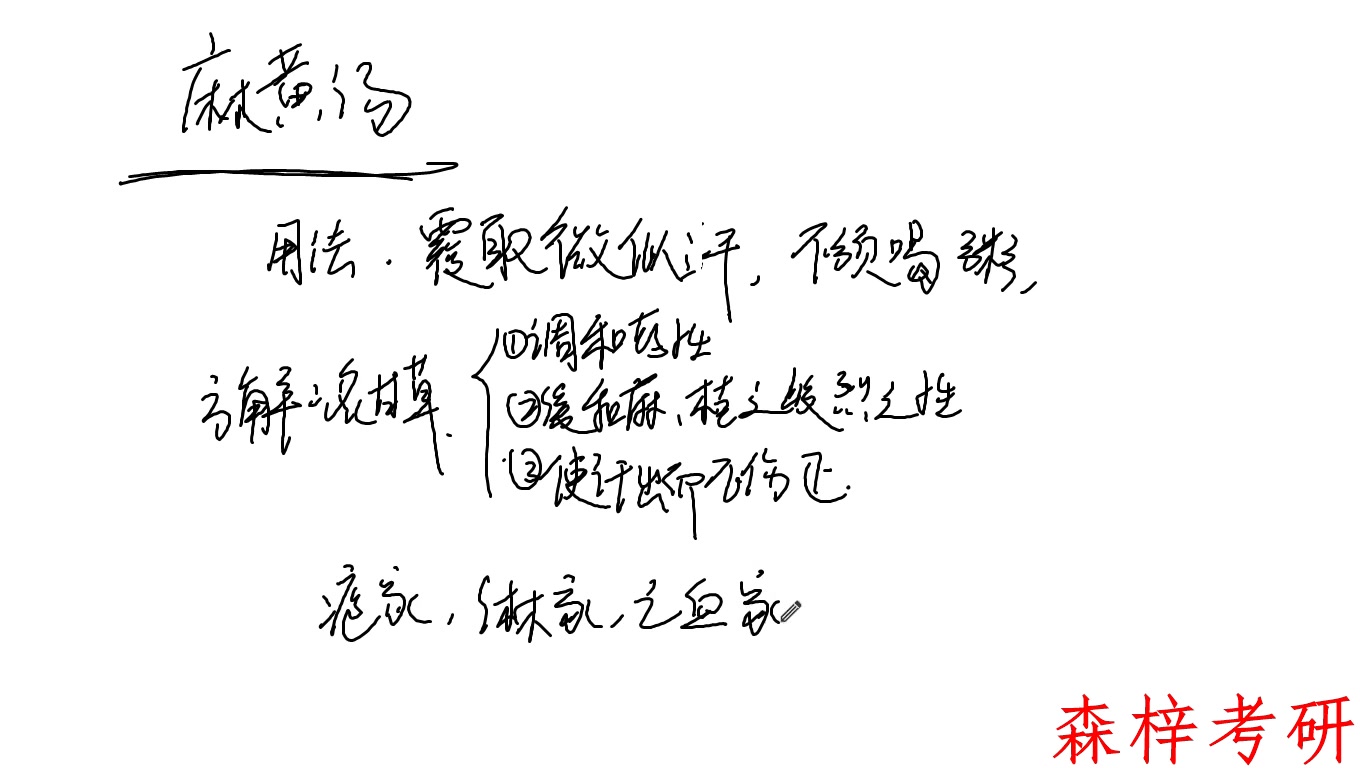 麻黄汤
用法.覆取微似汗,不须喝粥,
方解:炙甘草.
①调和药性
②缓和麻、桂之峻烈之性
③使汗出而不伤正.
疮家,淋家,亡血家
森梓考研